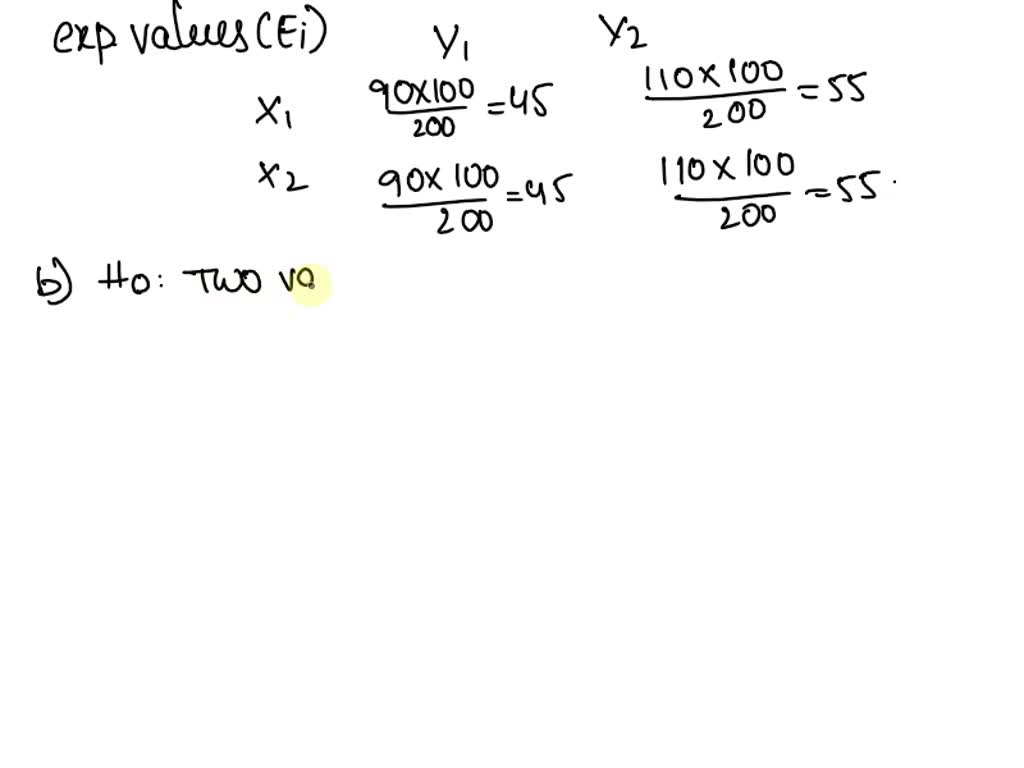 exp values (Ei) Y1 Y2
X1 90x100/200 = 45 110x100/200 = 55
X2 90x100/200 = 45 110x100/200 = 55.
b) Ho: Two va